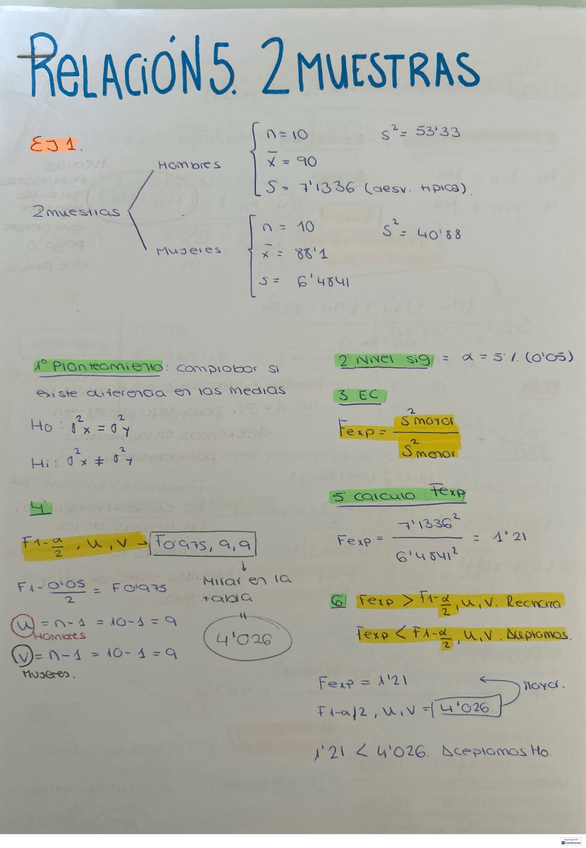 RELACIÓN 5. 2 MUESTRAS
EJ 1.
2 muestras
Hombres
n = 10 s² = 53'33
x̄ = 90
S = 7'1336 (desv. típica)
Mujeres
n = 10 s² = 40'88
x̄ = 88'1
s = 6'4841
1º Planteamiento: comprobar si
existe diferencia en las medias
Ho: σ²x = σ²y
Hi: σ²x ≠ σ²y
2 Nivel sig = α = 5% (0'05)
3 EC
Fexp = S² mayor / S² menor
4
F1-α/2, u, v → F0'975, 9, 9
F1-0'05/2 = F0'975
Mirar en la
tabla
"
4'026
u = n-1 = 10-1 = 9
Hombres
v = n-1 = 10-1 = 9
Mujeres.
5 Calculo Fexp
Fexp = 7'1336² / 6'4841² = 1'21
6 Fexp > F1-α/2, u, v. Rechaza
Fexp < F1-α/2, u, v. Aceptamos.
Fexp = 1'21
mayor.
F1-α/2, u, v = 4'026
1'21 < 4'026. Aceptamos Ho.